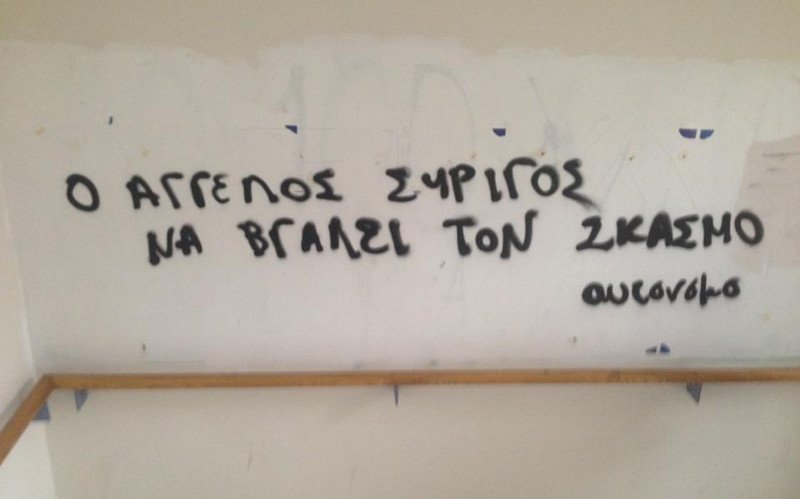 Ο ΑΓΓΕΛΟΣ ΣΥΡΙΓΟΣ
ΝΑ ΒΓΑΛΕΙ ΤΟΝ ΣΚΑΣΜΟ
αυτόνομο